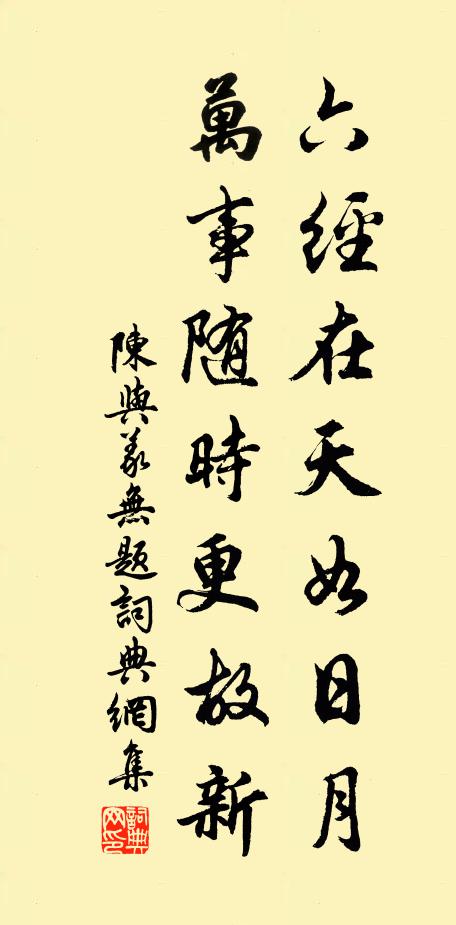 六經在天如日月
萬事隨時更故新
陳與義無題詞典網集
詞典網印